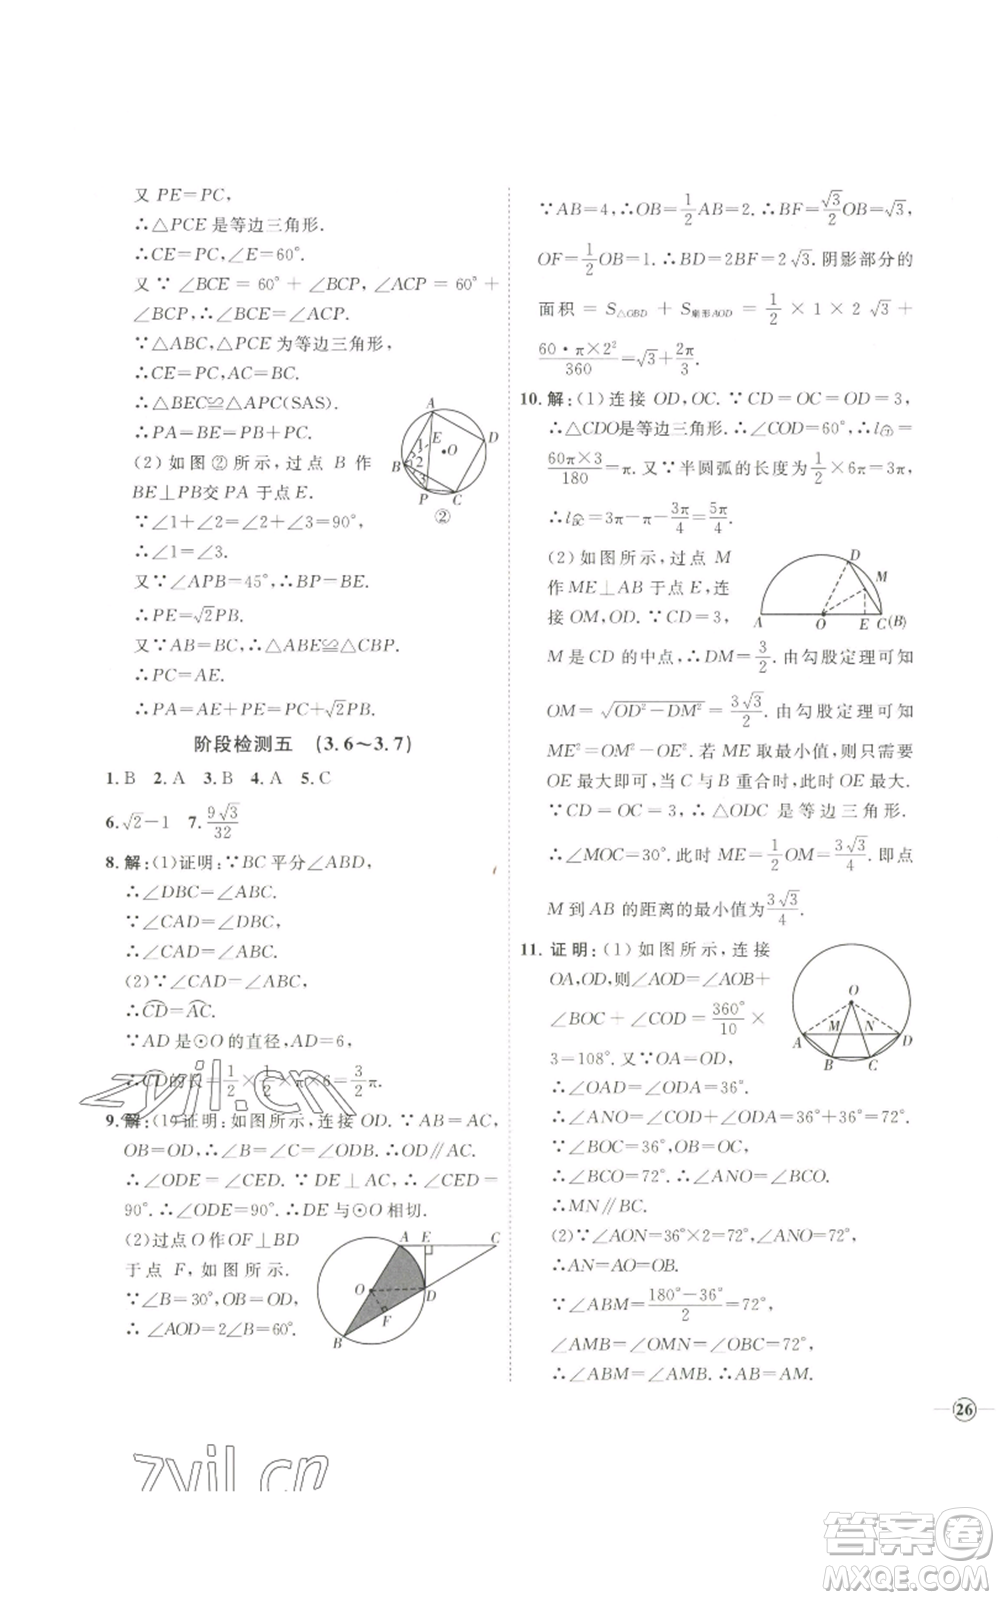 又 PE=PC,
∴△PCE 是等边三角形.
∴CE=PC,∠E=60°.
又 ∵ ∠BCE = 60° + ∠BCP, ∠ACP = 60° +
∠BCP,∴∠BCE=∠ACP.
∵△ABC,△PCE 为等边三角形,
∴CE=PC,AC=BC.
∴△BEC≌△APC(SAS).
∴PA=BE=PB+PC.
(2) 如图②所示，过点 B 作
BE⊥PB交 PA 于点 E.
∵∠1+∠2=∠2+∠3=90°,
∴∠1=∠3.
又∵∠APB=45°,∴BP=BE.
∴PE=√2PB.
又∵AB=BC,∴△ABE≌△CBP.
∴PC=AE.
∴PA=AE+PE=PC+√2PB.
A
E
D
1
2
O
B
3
P
C
②
阶段检测五 (3.6～3.7)
1. B 2. A 3. B 4. A 5. C
6. √2−1 7. 9√3/32
8. 解:(1)证明:∵BC平分∠ABD,
∴∠DBC=∠ABC.
∵∠CAD=∠DBC,
∴∠CAD=∠ABC.
(2)∵∠CAD=∠ABC,
∴CD=AC.
∵AD 是⊙O 的直径,AD=6,
∴CD的长=1/2×1/2×π×6=3/2π.
9. 解:(1)证明:如图所示,连接 OD. ∵AB=AC,
OB=OD,∴∠B=∠C=∠ODB.∴OD∥AC.
∴∠ODE = ∠CED. ∵ DE ⊥ AC, ∴ ∠CED =
90°.∴∠ODE=90°.∴DE与⊙O 相切.
(2)过点 O 作OF⊥BD
于点 F,如图所示.
∵∠B=30°,OB=OD,
∴ ∠AOD=2∠B=60°.
A E C
O
D
F
B
∵AB=4,∴OB=1/2AB=2.∴BF=√3/2OB=√3,
OF=1/2OB=1.∴BD=2BF=2√3.阴影部分的
面积 = S△OBD + S扇形AOD = 1/2 × 1 × 2√3 +
60·π×2²/360=√3+2π/3.
10. 解:(1)连接 OD,OC.∵CD=OC=OD=3,
∴△CDO是等边三角形.∴∠COD=60°,∴l㊥=
60π×3/180=π. 又∵半圆弧的长度为1/2×6π=3π,
∴l㊎=3π−π−3π/4=5π/4.
(2) 如图所示，过点 M
作 ME⊥AB 于点 E,连
接 OM,OD.∵CD=3,
D
M
A O E C(B)
M 是 CD 的中点,∴DM=3/2. 由勾股定理可知
OM=√OD²−DM²=3√3/2. 由勾股定理可知
ME²=OM²−OE². 若 ME 取最小值,只需要
OE最大即可,当 C 与 B 重合时,此时 OE最大.
∵CD=OC=3,∴△ODC 是等边三角形.
∴∠MOC=30°. 此时 ME=1/2OM=3√3/4. 即点
M 到 AB 的距离的最小值为3√3/4.
11. 证明:(1)如图所示,连接
OA,OD,则∠AOD=∠AOB+
∠BOC + ∠COD = 360°/10 ×
3=108°. 又∵OA=OD,
∴∠OAD=∠ODA=36°.
∴∠ANO=∠COD+∠ODA=36°+36°=72°.
∵∠BOC=36°,OB=OC,
∴∠BCO=72°.∴∠ANO=∠BCO.
∴MN∥BC.
(2)∵∠AON=36°×2=72°,∠ANO=72°,
∴AN=AO=OB.
∵∠ABM=180°−36°/2=72°,
∠AMB=∠OMN=∠OBC=72°,
∴∠ABM=∠AMB. ∴AM=AB.
O
A M N D
B C
26
zyjl.cn
zyjl.cn
答案圈
MXQE.COM